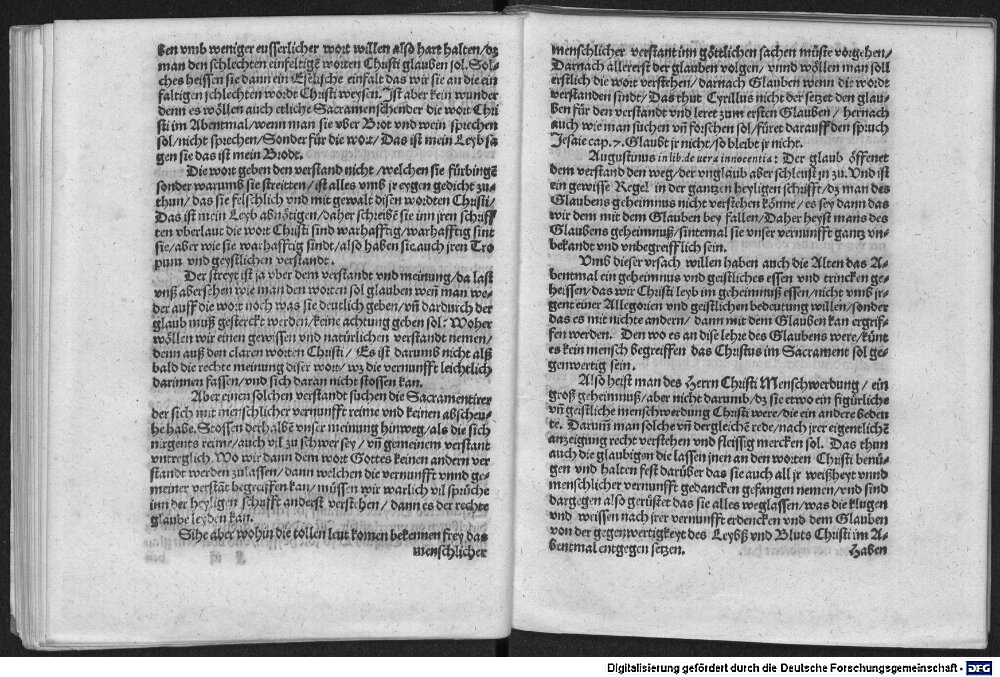 sen vmb weniger eusserlicher wort willen also hart halten/dz
man den schlechten einfeltigē worten Christi glauben sol. Sol-
ches heissen sie dann ein Eselische einfalt das wir sie an die ein
faltigen schlechten wordt Christi weysen. Ist aber kein wunder
denn es wöllen auch etliche Sacramenschender die wort Chri
sti im Abentmal/wenn man sie vber Brot vnd wein sprechen
sol/nicht sprechen/Sonder für die wort/Das ist mein Leyb sa
gen sie das ist mein Brodt.
Die wort geben den verstand nicht/welchen sie fürbingē
sonder warumb sie streitten/ist alles vmb jr eygen gedicht zu-
thun/das sie felschlich vnd mit gewalt disen wordten Christi/
Das ist mein Leyb abnötigen/daher schreibē sie inn jren schriff
ten vberlaut die wort Christi sind warhafftig/warhafftig sint
sie/aber wie sie warhafftig sindt/also haben sie auch jren Tro
pum vnd geystlichen verstandt.
Der streyt ist ja vber dem verstandt vnd meinung/da last
vnß abersehen wie man den worten sol glauben weñ man we-
der auff die wort noch was sie deutlich geben/vñ dardurch der
glaub muß gesterckt werden/keine achtung geben sol: Woher
wöllen wir einen gewissen vnd natürlichen verstandt nemen/
denn auß den claren worten Christi/ Es ist darumb nicht alß
bald die rechte meinung diser wort/wz die vernunfft leichtlich
darinnen fassen/vnd sich daran nicht stossen kan.
Aber einen solchen verstandt suchen die Sacramentirer
der sich mit menschlicher vernunfft reime vnd keinen abscheu-
he habe. Stossen derhalbē vnser meinung hinweg/als die sich
nirgents reime/auch vil zu schwer sey/ vñ gemeinem verstant
vntreglich. Wo wir dann dem wort Gottes keinen andern ver
standt werden zulassen/dann welchen die vernunfft vnnd ge-
meiner verstāt begreiffen kan/müssen wir warlich vil sprüche
inn der heyligen schrifft anderst verstehen/ dann es der rechte
glaube leyden kan.
Sihe aber wohin die tollen leut komen bekennen frey das
menschlicher
menschlicher verstant inn göttlichen sachen müste vorgehen/
Darnach allererst der glauben volgen/ vnnd wöllen man soll
erstlich die wort verstehen/darnach Glauben wenn die wordt
verstanden sindt/Das thut Cyrillus nicht der setzet den glau-
ben für den verstandt vnd leret zum ersten Glauben/ hernach
auch wie man suchen vñ forschen sol/füret darauff den spruch
Jesaie cap. 7. Glaubt jr nicht/so bleibt jr nicht.
Augustinus in lib. de uera innocentia: Der glaub öffenet
dem verstand den weg/der vnglaub aber schleust jn zu. Vnd ist
ein gewisse Regel in der gantzen heyligen schrifft/dz man des
Glaubens geheimnus nicht verstehen könne/es sey dann das
wir dem mit dem Glauben bey fallen/Daher heyst mans des
Glaubens geheimnuß/sintemal sie vnser vernunfft gantz vn-
bekandt vnd vnbegreifflich sein.
Vmb dieser vrsach willen haben auch die Alten das A-
bentmal ein geheimnus vnd geistliches essen vnd trincken ge-
heissen/das wir Christi leyb im geheimnuß essen/nicht vmb jr-
gent einer Allegorien vnd geistlichen bedeutung willen/sonder
das es mit nichte andern/ dann mit dem Glauben kan ergrif-
fen werden. Den wo es an dise lehre des Glaubens were/künt
es kein mensch begreiffen das Christus im Sacrament sol ge-
genwertig sein.
Also heist man des Herrn Christi Menschwerdung/ ein
groß geheimnuß/aber nicht darumb/dz sie etwo ein figürliche
vñ geistliche menschwerdung Christi were/die ein andere beden
te. Darum̄ man solche vñ dergleichē rede/nach jrer eigentlichē
anzeigung recht verstehen vnd fleissig mercken sol. Das thun
auch die glaubigen die lassen jnen an den worten Christi benü-
gen vnd halten fest darüber das sie auch all jr weißheyt vnnd
menschlicher vernunfft gedancken gefangen nemen/vnd sind
dargegen also gerüstet das sie alles weglassen/was die klugen
vnd weissen nach jrer vernunfft erdencken vnd dem Glauben
von der gegenwertigkeyt des Leybß vnd Bluts Christi im A-
bentmal entgegen setzen.
Haben
Digitalisierung gefördert durch die Deutsche Forschungsgemeinschaft - DFG